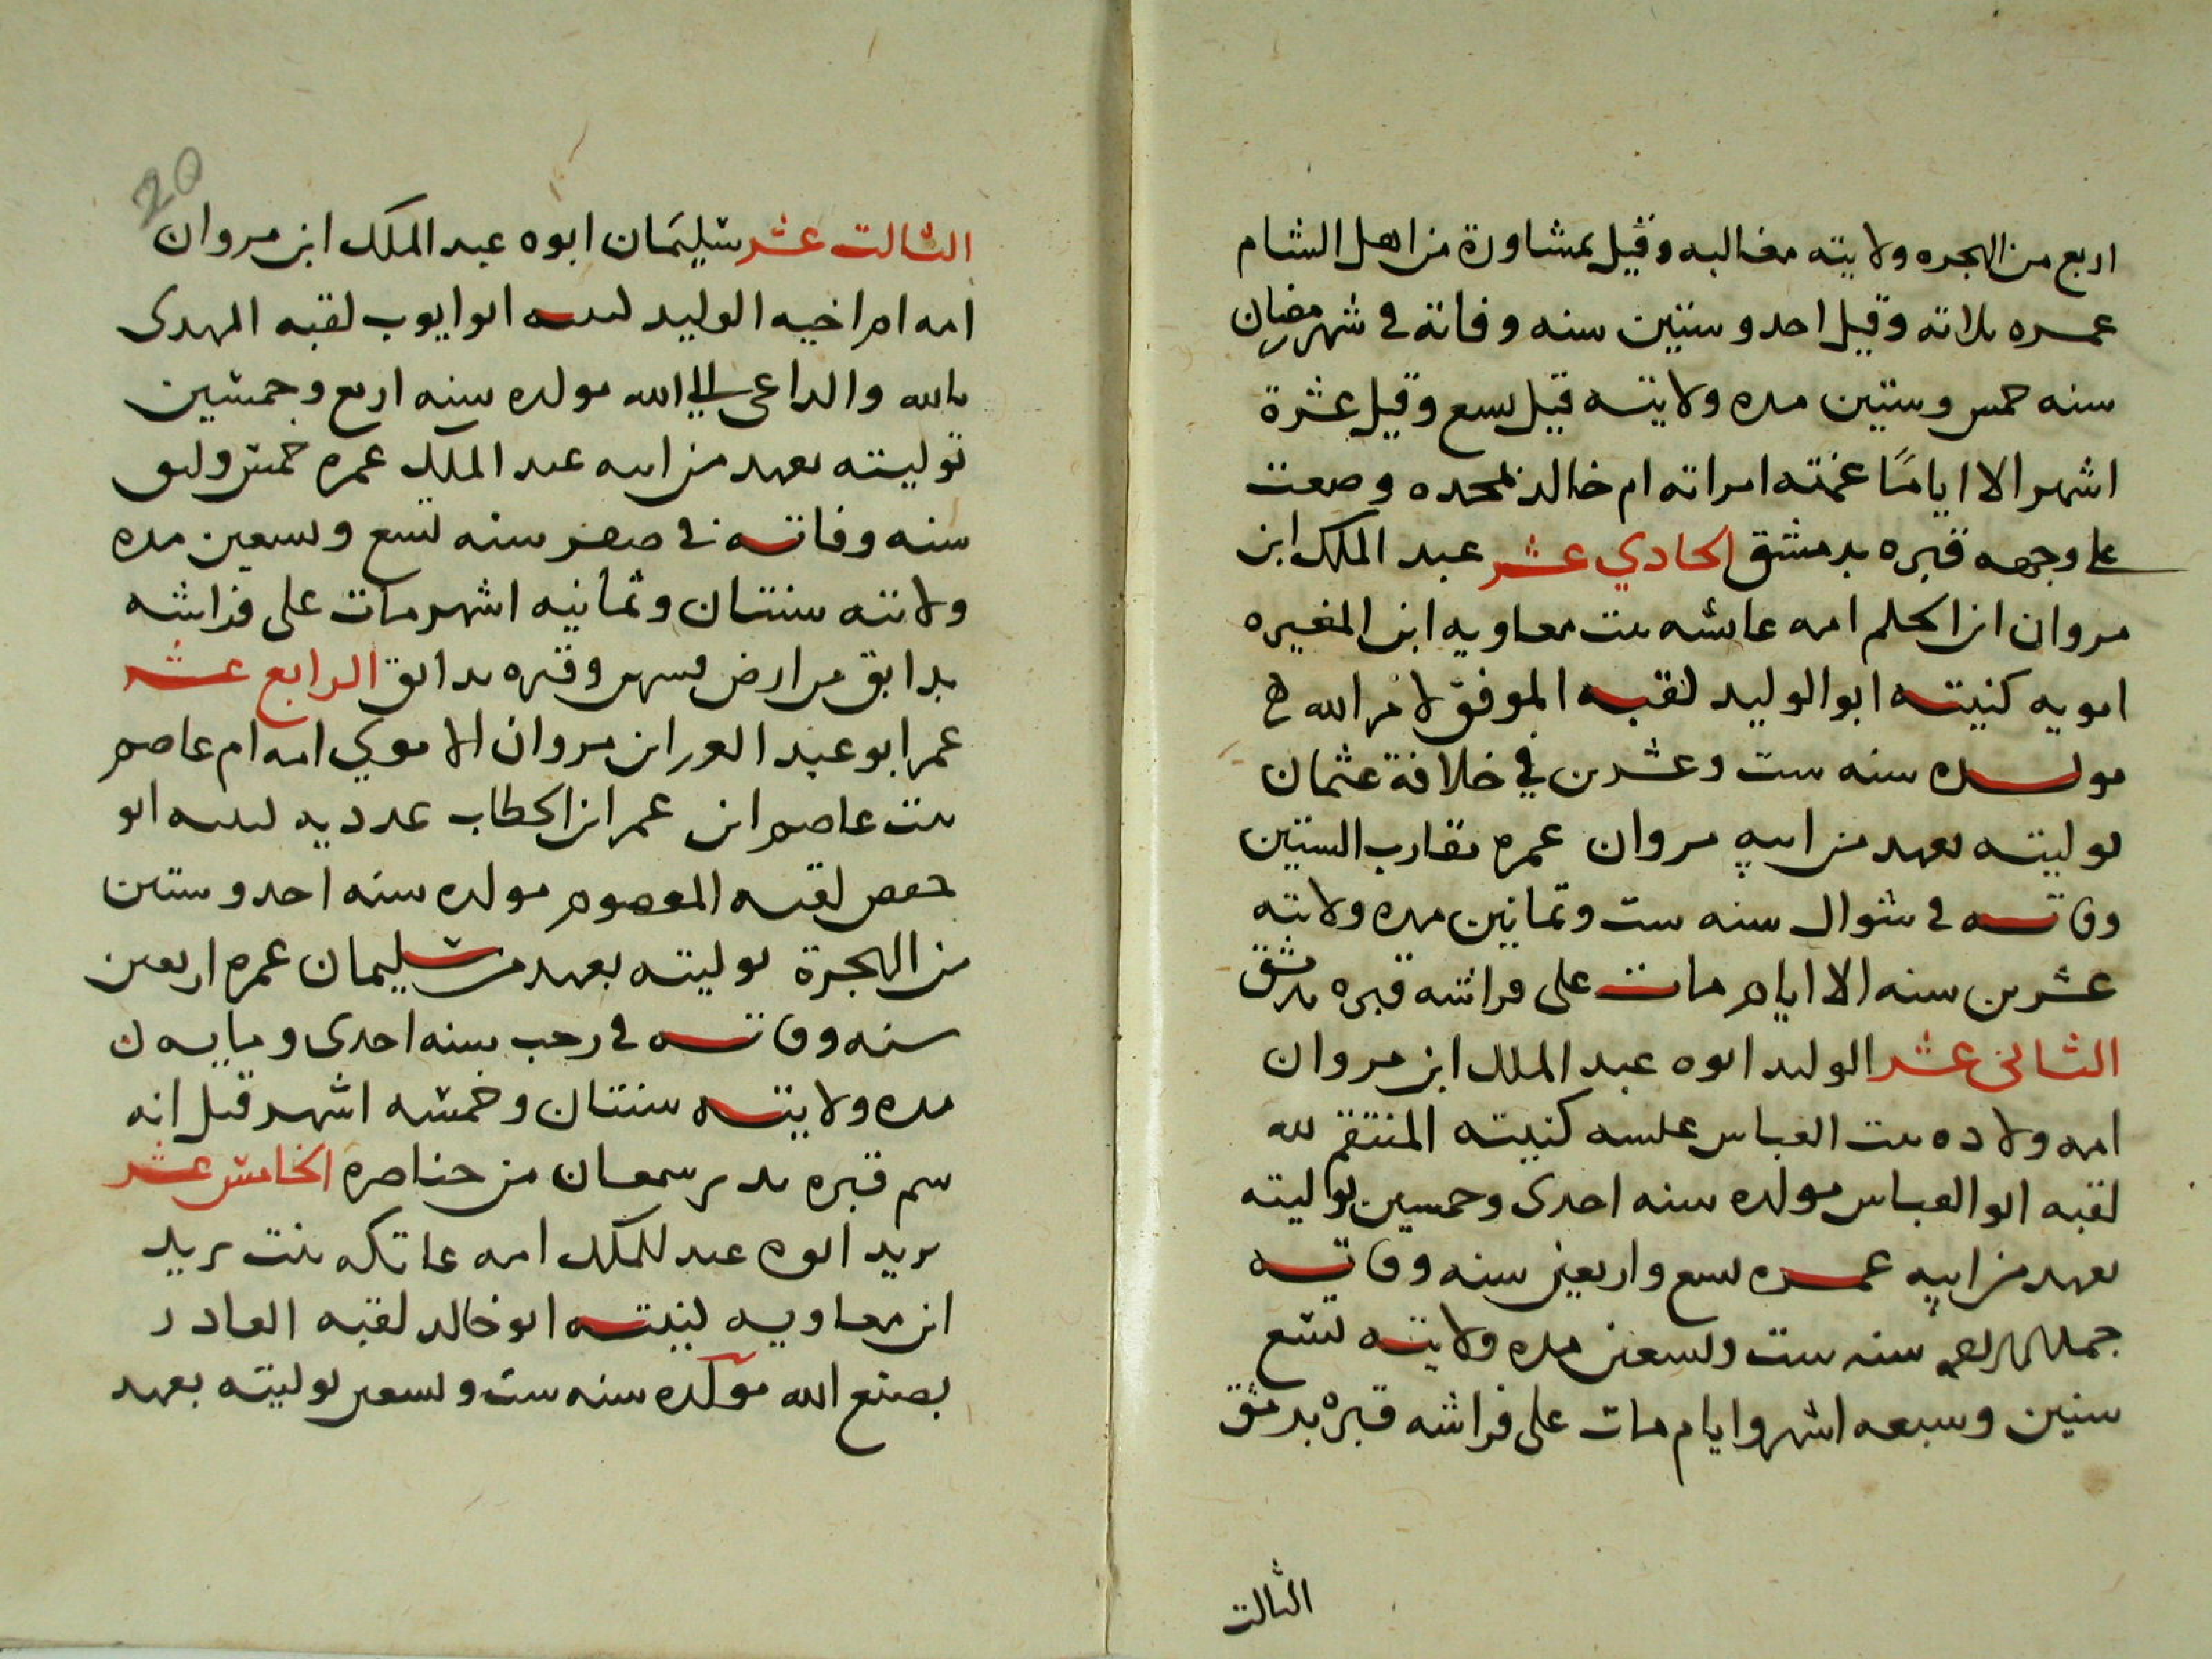 اربع من الهجره ولايته مغالبه وقيل بمشاورة من اهل الشام
عمره ثلاثه وقيل احد وستين سنه وفاته في شهر رمضان
سنه خمس وستين مده ولايته قيل تسع وقيل عشرة
اشهر الا اياما غمته امراته ام خالد بمخده وضعت
على وجهه قبره بدمشق الحادي عشر عبد الملك ابن
مروان ابن الحكم امه عائشه بنت معاويه ابن المغيره
امويه كنيته ابو الوليد لقبه الموفق لامر الله
مولده سنه ست وعشرين في خلافة عثمان
توليته بعهد من ابيه مروان عمره تقارب الستين
وفاته في شوال سنه ست وثمانين مده ولايته
عشرين سنه الا ايام مات على فراشه قبره بدمشق
الثاني عشر الوليد ابوه عبد الملك ابن مروان
امه ولاده بنت العباس عبسيه كنيته المنتقم لله
لقبه ابو العباس مولده سنه احدى وخمسين توليته
بعهد من ابيه عمره تسع واربعين سنه وفاته
سنه ست وتسعين مده ولايته تسع
سنين وسبعه اشهر وايام مات على فراشه قبره بدمشق
الثالث
20
الثالث عشر سليمان ابوه عبد الملك ابن مروان
امه ام اخيه الوليد كنيته ابو ايوب لقبه المهدى
بالله والداعى الى الله مولده سنه اربع وخمسين
توليته بعهد من ابيه عبد الملك عمره خمس واربعين
سنه وفاته في صفر سنه تسع وتسعين مده
ولايته سنتان وثمانيه اشهر مات على فراشه
بدابق من ارض قنسرين وقبره بدابق الرابع عشر
عمر ابو عبد العزيز ابن مروان الاموي امه ام عاصم
بنت عاصم ابن عمر ابن الخطاب عدويه كنيته ابو
حفص لقبه المعصوم مولده سنه احد وستين
من الهجرة توليته بعهد من سليمان عمره اربعين
سنه وفاته في رجب سنه احدى ومايه
مده ولايته سنتان وخمسه اشهر قيل انه
سم قبره بدير سمعان من خناصره الخامس عشر
يزيد ابوه عبد الملك امه عاتكه بنت يزيد
ابن معاويه كنيته ابو خالد لقبه القادر
بصنع الله مولده سنه ست وسبعين توليته بعهد